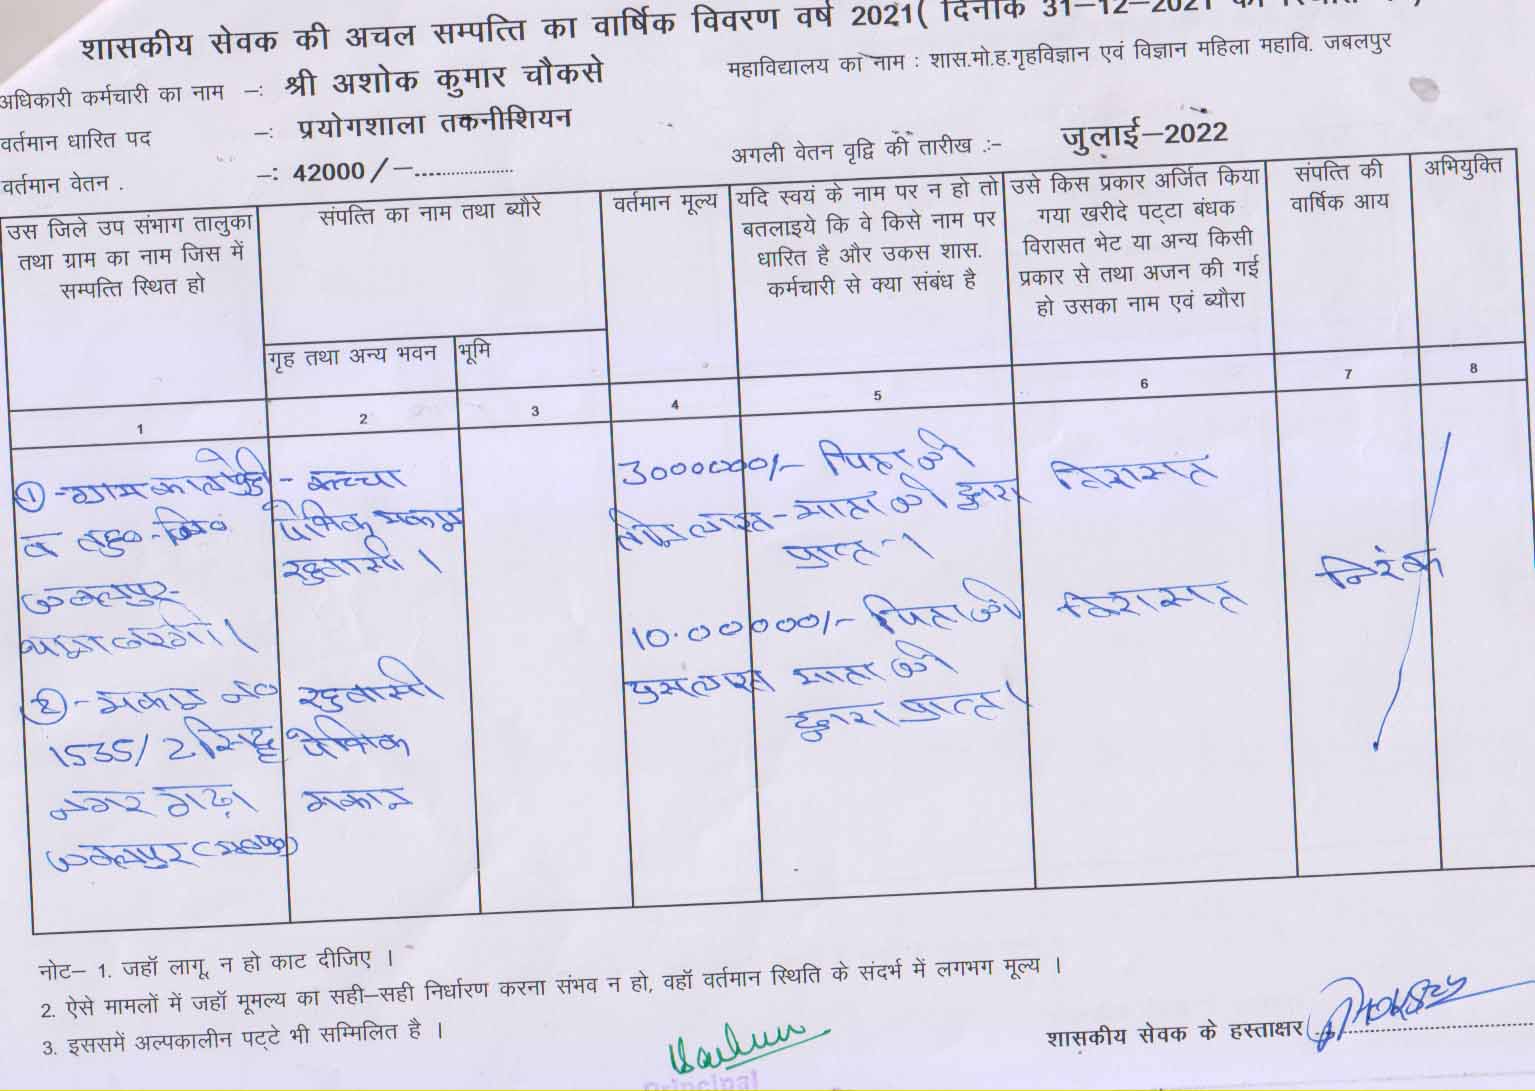 शासकीय सेवक की अचल सम्पत्ति का वार्षिक विवरण वर्ष 2021( दिनांक 31–12–2021
अधिकारी कर्मचारी का नाम –: श्री अशोक कुमार चौकसे
महाविद्यालय का नाम : शास.मो.ह.गृहविज्ञान एवं विज्ञान महिला महावि. जबलपुर
वर्तमान धारित पद –: प्रयोगशाला तकनीशियन
वर्तमान वेतन . –: 42000/–
अगली वेतन वृद्वि की तारीख :– जुलाई–2022
उस जिले उप संभाग तालुका
तथा ग्राम का नाम जिस में
सम्पत्ति स्थित हो
संपत्ति का नाम तथा ब्यौरे
गृह तथा अन्य भवन
भूमि
वर्तमान मूल्य
यदि स्वयं के नाम पर न हो तो
बतलाइये कि वे किसे नाम पर
धारित है और उकस शास.
कर्मचारी से क्या संबंध है
उसे किस प्रकार अर्जित किया
गया खरीदे पट्टा बंधक
विरासत भेट या अन्य किसी
प्रकार से तथा अजन की गई
हो उसका नाम एवं ब्यौरा
संपत्ति की
वार्षिक आय
अभियुक्ति
1 2 3 4 5 6 7 8
① - ग्राम
जबलपुर
② - मकान नं०
1535/2 सिद्ध
नगर गढ़ा
जबलपुर (म०प्र०)
- कच्चा
पैत्रिक मकान
रहवासी ।
रहवासी
पैत्रिक
मकान
3000000/- पिता की
माता की द्वारा
प्राप्त - ।
विरासत
10.00000/- पिता की
माता की
द्वारा प्राप्त ।
विरासत
निरंक
नोट– 1. जहॉ लागू न हो काट दीजिए ।
2. ऐसे मामलों में जहॉ मूमल्य का सही–सही निर्धारण करना संभव न हो, वहॉ वर्तमान स्थिति के संदर्भ में लगभग मूल्य ।
3. इससमें अल्पकालीन पट्टे भी सम्मिलित है ।
शासकीय सेवक के हस्ताक्षर
Principal